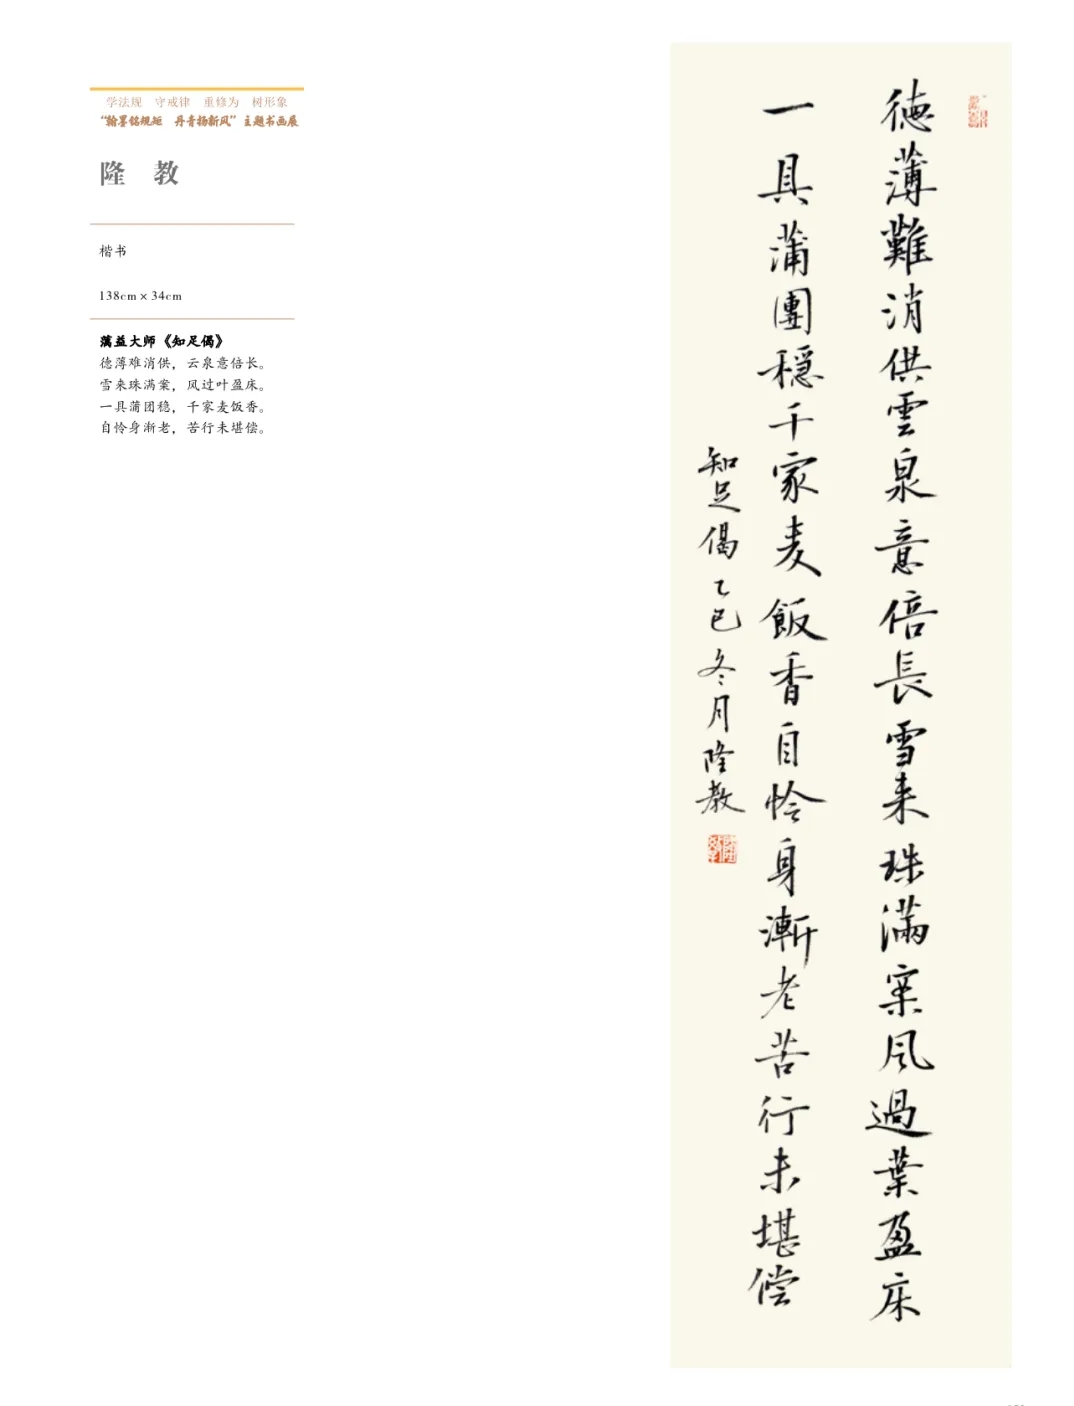 学法规 守戒律 重修为 树形象
“翰墨铭规矩 丹青扬新风”主题书画展
隆 教
楷书
138cm × 34cm
蕅益大师《知足偈》
德薄难消供，云泉意倍长。
雪来珠满案，风过叶盈床。
一具蒲团稳，千家麦饭香。
自怜身渐老，苦行未堪偿。
德薄難消供雲泉意倍長雪来珠滿案風過葉盈床
一具蒲團穩千家麦飯香自怜身漸老苦行未堪偿
知足偈乙巳冬月隆教